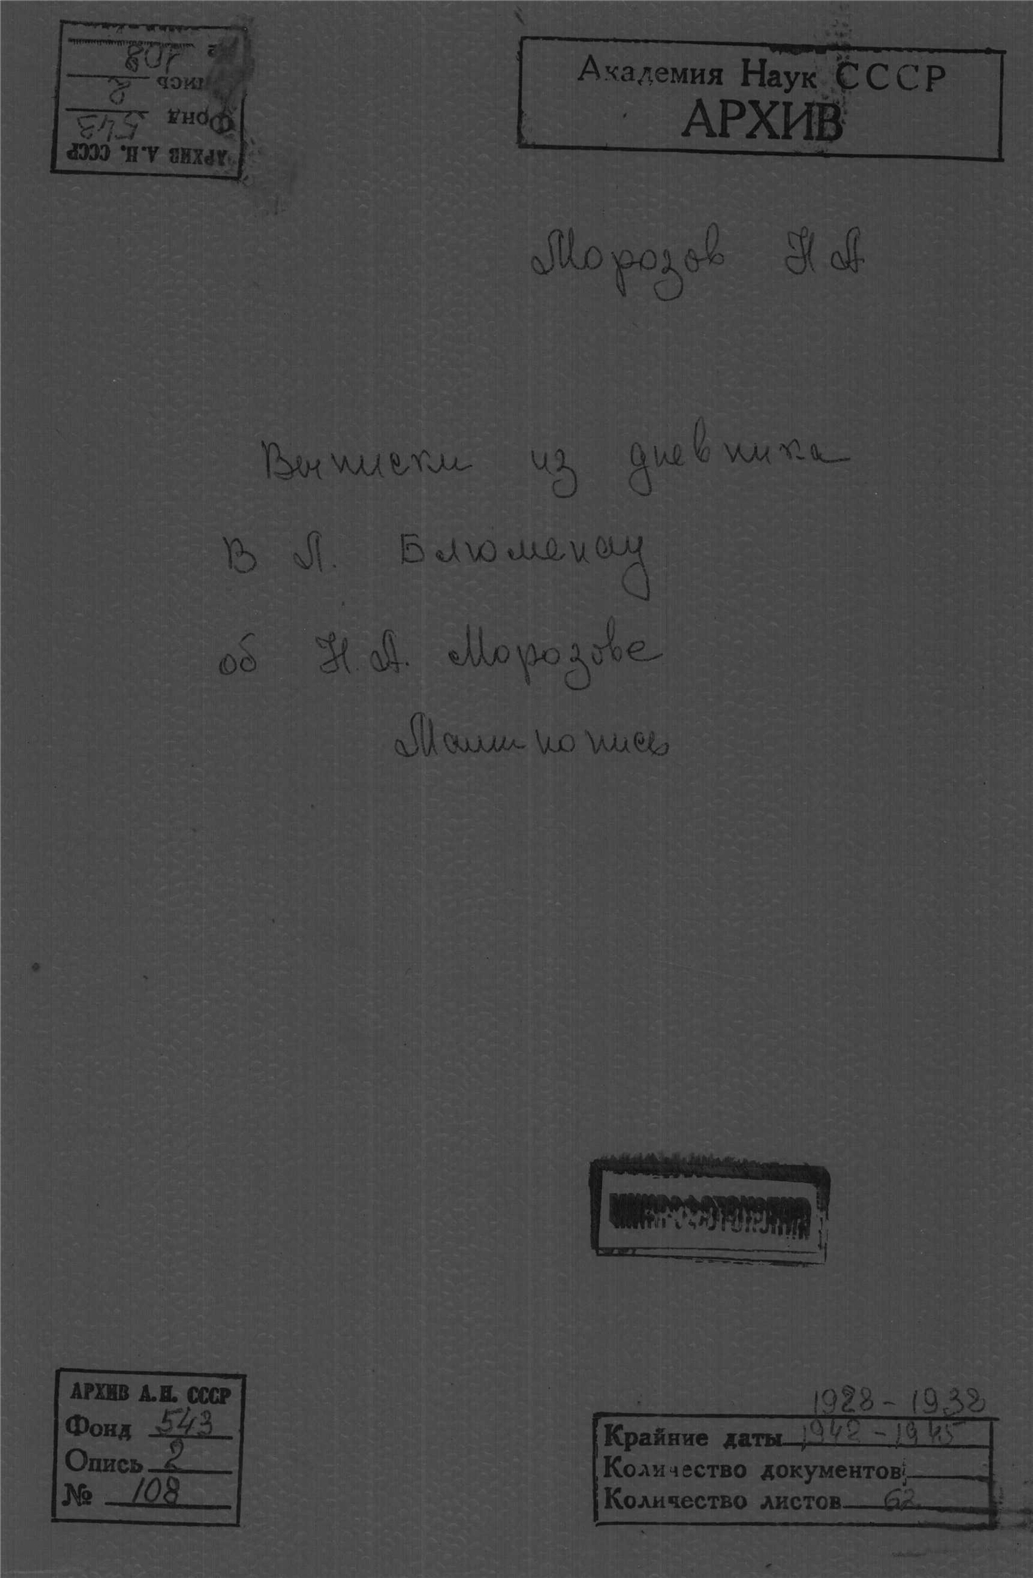 АРХИВ А.Н. СССР
Фонд 543
Опись 2
№ 108
Академия Наук СССР
АРХИВ
Морозов Н А
Выписки из дневника
В Л. Блюменау
об Н.А. Морозове
Машинопись
АРХИВ А.Н. СССР
Фонд 543
Опись 2
№ 108
1928-1932
Крайние даты 1942-1945
Количество документов
Количество листов 62